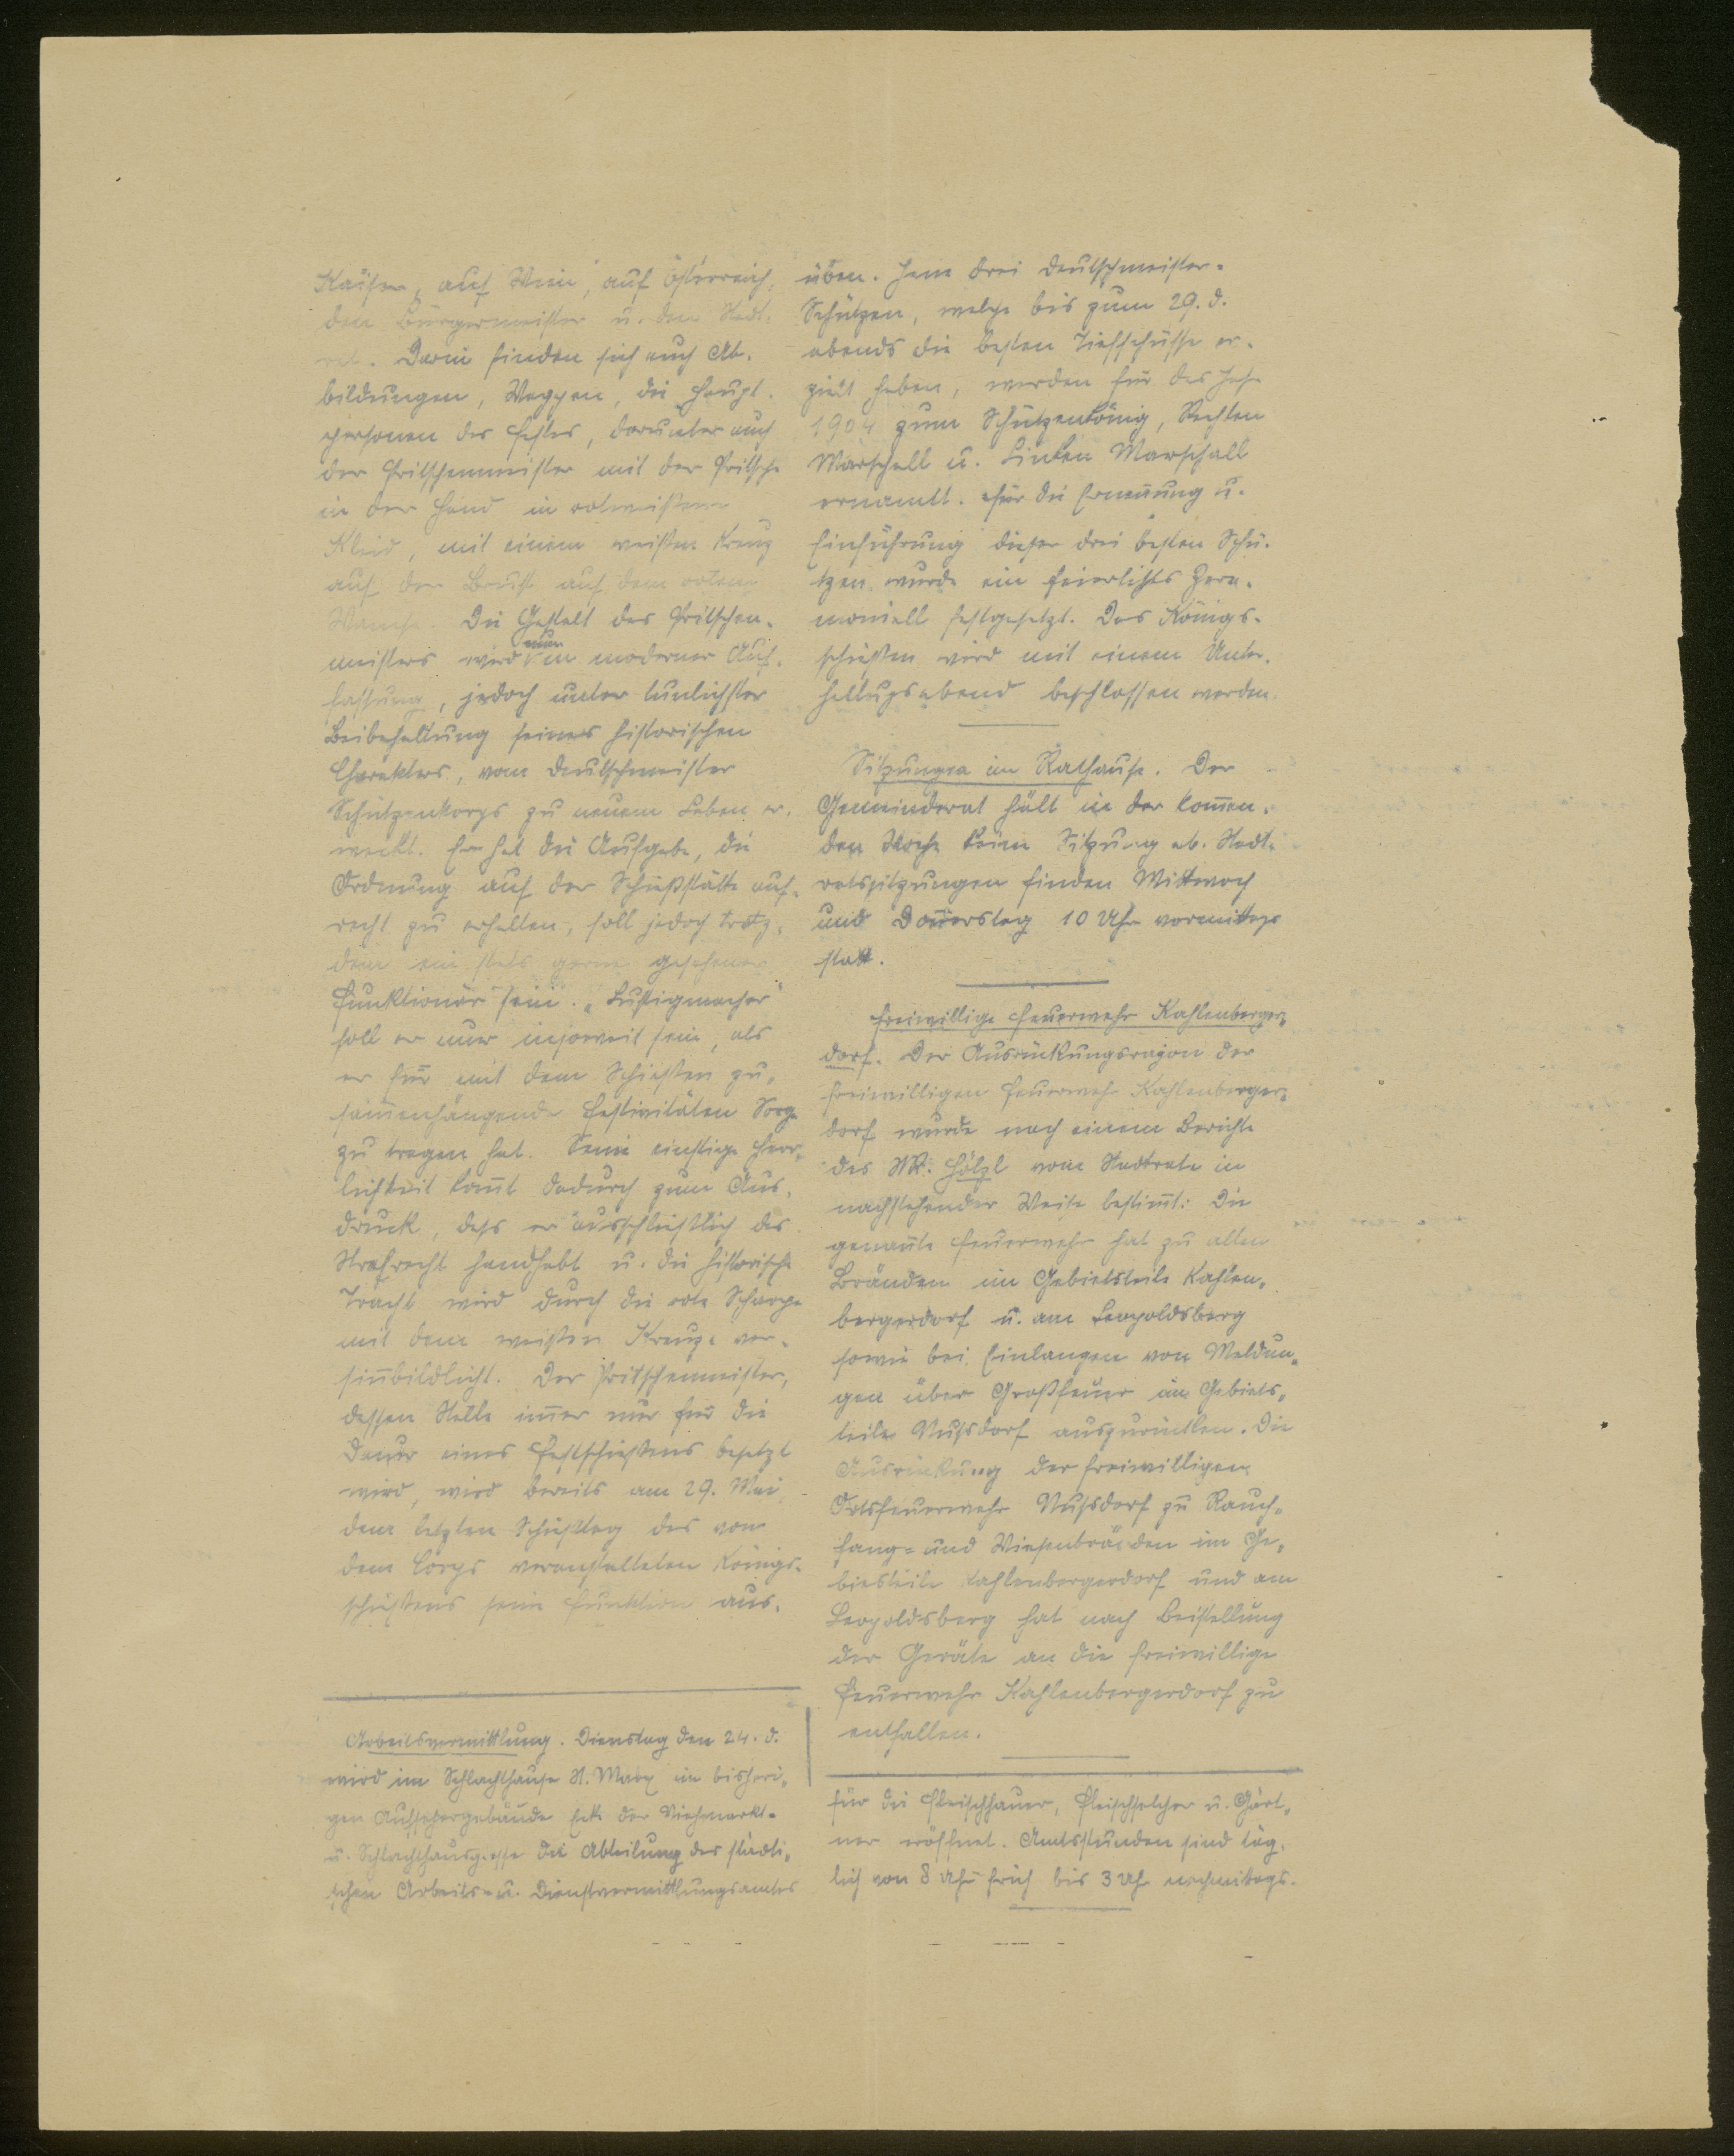 Kaiser, auf Wien, auf Österreich,
den Bürgermeister u. den Stadt-
rat. Darin finden sich auch Ab-
bildungen, Wappen, die Haupt-
personen des Festes, darunter auch
der Pritschenmeister mit der Pritsche
in der Hand in rotweißem
Kleid, mit einem weißen Kreuz
auf der Brust auf dem rotem
Wamse. Die Gestalt des Pritschen-
meisters wird nun in moderner Auf-
fassung, jedoch unter tunlichster
Beibehaltung seines historischen
Charakters, vom Deutschmeister
Schützenkorps zu neuem Leben er-
weckt. Er hat die Aufgabe, die
Ordnung auf der Schießstätte auf-
recht zu erhalten, soll jedoch trotz-
dem ein stets gerne gesehener
Funktionär sein. „Lustigmacher"
soll er nur insoweit sein, als
er für mit dem Schießen zu-
sam̅enhängende Festivitäten Sorge
zu tragen hat. Seine einstige Herr-
lichkeit kom̅t dadurch zum Aus-
druck, dass er ausschließlich das
Strafrecht handhabt u. die historische
Tracht wird durch die rote Scharpe
mit dem weißen Kreuze ver-
sin̅bildlicht. Der Pritschenmeister,
dessen Stelle im̅er nur für die
Dauer eines Festschießens besetzt
wird, wird bereits am 29. Mai,
dem letzten Schießtag des von
dem Corps veranstalteten Königs-
schießens seine Funktion aus-
üben. Jene drei Deutschmeister-
Schützen, welche bis zum 29. d.
abends die besten Tiefschüsse er-
zielt haben, werden für das Jahr
1904 zum Schützenkönig, Rechten
Marschall u. Linken Marschall
ernannt. Für die Ernen̅ung u.
Einführung dieser drei besten Schü-
tzen wurde ein feierliches Zere-
moniell festgesetzt. Das Königs-
schießen wird mit einem Unter-
haltungsabend beschlossen werden.
Sitzungen im Rathause. Der
Gemeinderat hält in der kom̅en-
den Woche keine Sitzung ab. Stadt-
ratssitzungen finden Mittwoch
und Don̅erstag 10 Uhr vormittags
statt.
Freiwillige Feuerwehr Kahlenberger-
dorf. Der Ausrückungsrayon der
freiwilligen Feuerwehr Kahlenberger-
dorf wurde nach einem Berichte
des StR. Hölzl vom Stadtrate in
nachstehender Weise bestim̅t: Die
genan̅te Feuerwehr hat zu allen
Bränden im Gebietsteile Kahlen-
bergerdorf u. am Leopoldsberg
sowie bei Einlangen von Meldun-
gen über Großfeuer im Gebiets-
teile Nussdorf auszurücken. Die
Ausrückung der freiwilligen
Ortsfeuerwehr Nussdorf zu Rauch-
fang- und Wiesenbränden im Ge-
bietsteile Kahlenbergerdorf und am
Leopoldsberg hat nach Beistellung
der Geräte an die freiwillige
Feuerwehr Kahlenbergerdorf zu
entfallen.
Arbeitsvermittlung. Dienstag den 24. d.
wird im Schlachthause St. Marx im bisheri-
gen Aufsehergebäude Ecke der Viehmarkt-
u. Schlachthausgasse die Abteilung des städti-
schen Arbeits- u. Dienstvermittlungsamtes
für die Fleischhauer, Fleischselcher u. Gärt-
ner eröffnet. Amtsstunden sind täg-
lich von 8 Uhr früh bis 3 Uhr nachmittags.